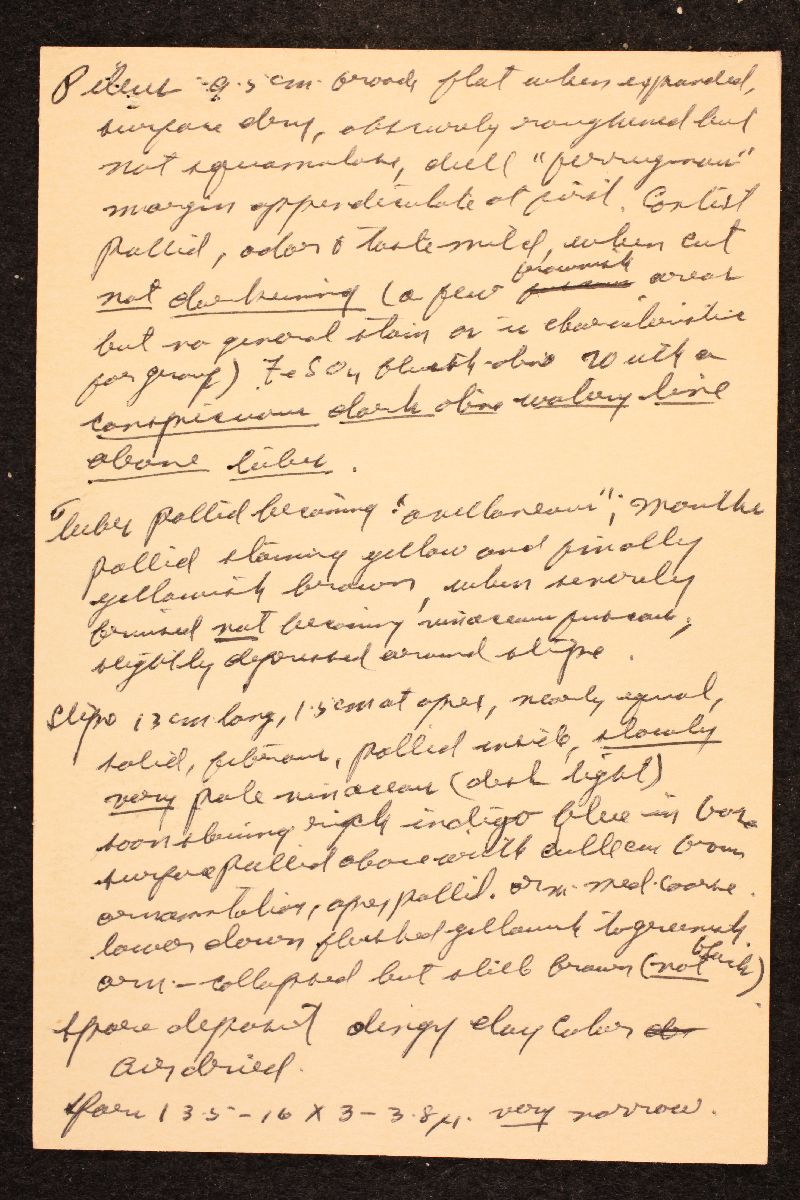 Pileus 9.5 cm broad, flat when expanded,
surface dry, obscurely roughened but
not squamulose, dull "ferruginous"
margin appendiculate at first. Context
pallid, odor & taste mild, when cut
not darkening (a few brownish areas
but no general stain as is characteristic
for group) FeSO4 bluish-olive with a
conspicuous dark olive watery line
above tubes.
Tubes pallid becoming "avellaneous"; mouths
pallid staining yellow and finally
yellowish brown, when severely
bruised not becoming vinaceous fuscous,
slightly depressed around stipe.
Stipe 13 cm long, 1.5 cm at apex, nearly equal,
solid, fibrous, pallid inside, slowly
very pale vinaceous (desk light)
soon staining rich indigo blue in base
surface pallid above with brown
ornamentation, apex pallid. orn. med. coarse.
lower down flushed yellowish to greenish
orn.- collapsed but still brown (not black)
Spore deposit dingy clay color
air dried.
Spores 13.5-16 X 3-3.8µ. very narrow.